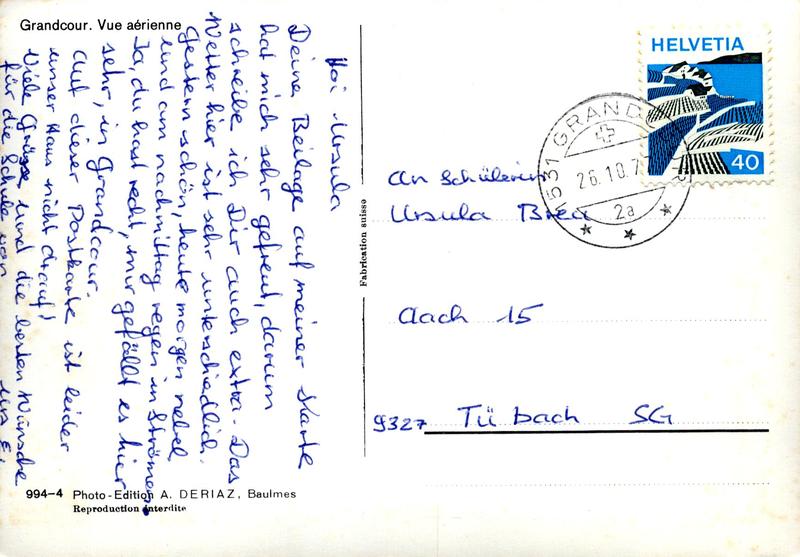 Grandcour. Vue aérienne
Hoi Ursula
Deine Beilage auf meiner Karte
hat mich sehr gefreut, darum
schreibe ich Dir auch extra. Das
Wetter hier ist sehr unterschiedlich.
Gestern schön, heute morgen nebel
und am nachmittag regen in Strömen.
Ja, du hast recht, mir gefällt es hier
sehr, in Grandcour.
Auf dieser Postkarte ist leider
unser Haus nicht drauf!
Viele Grüsse und die besten Wünsche
für die Schule von
994-4 Photo-Edition A. DERIAZ, Baulmes
Reproduction interdite
Fabrication suisse
HELVETIA
40
1531 GRANDCOUR
26.10.7
2a
An Schülerin
Ursula
Aach 15
9327 Tübach SG